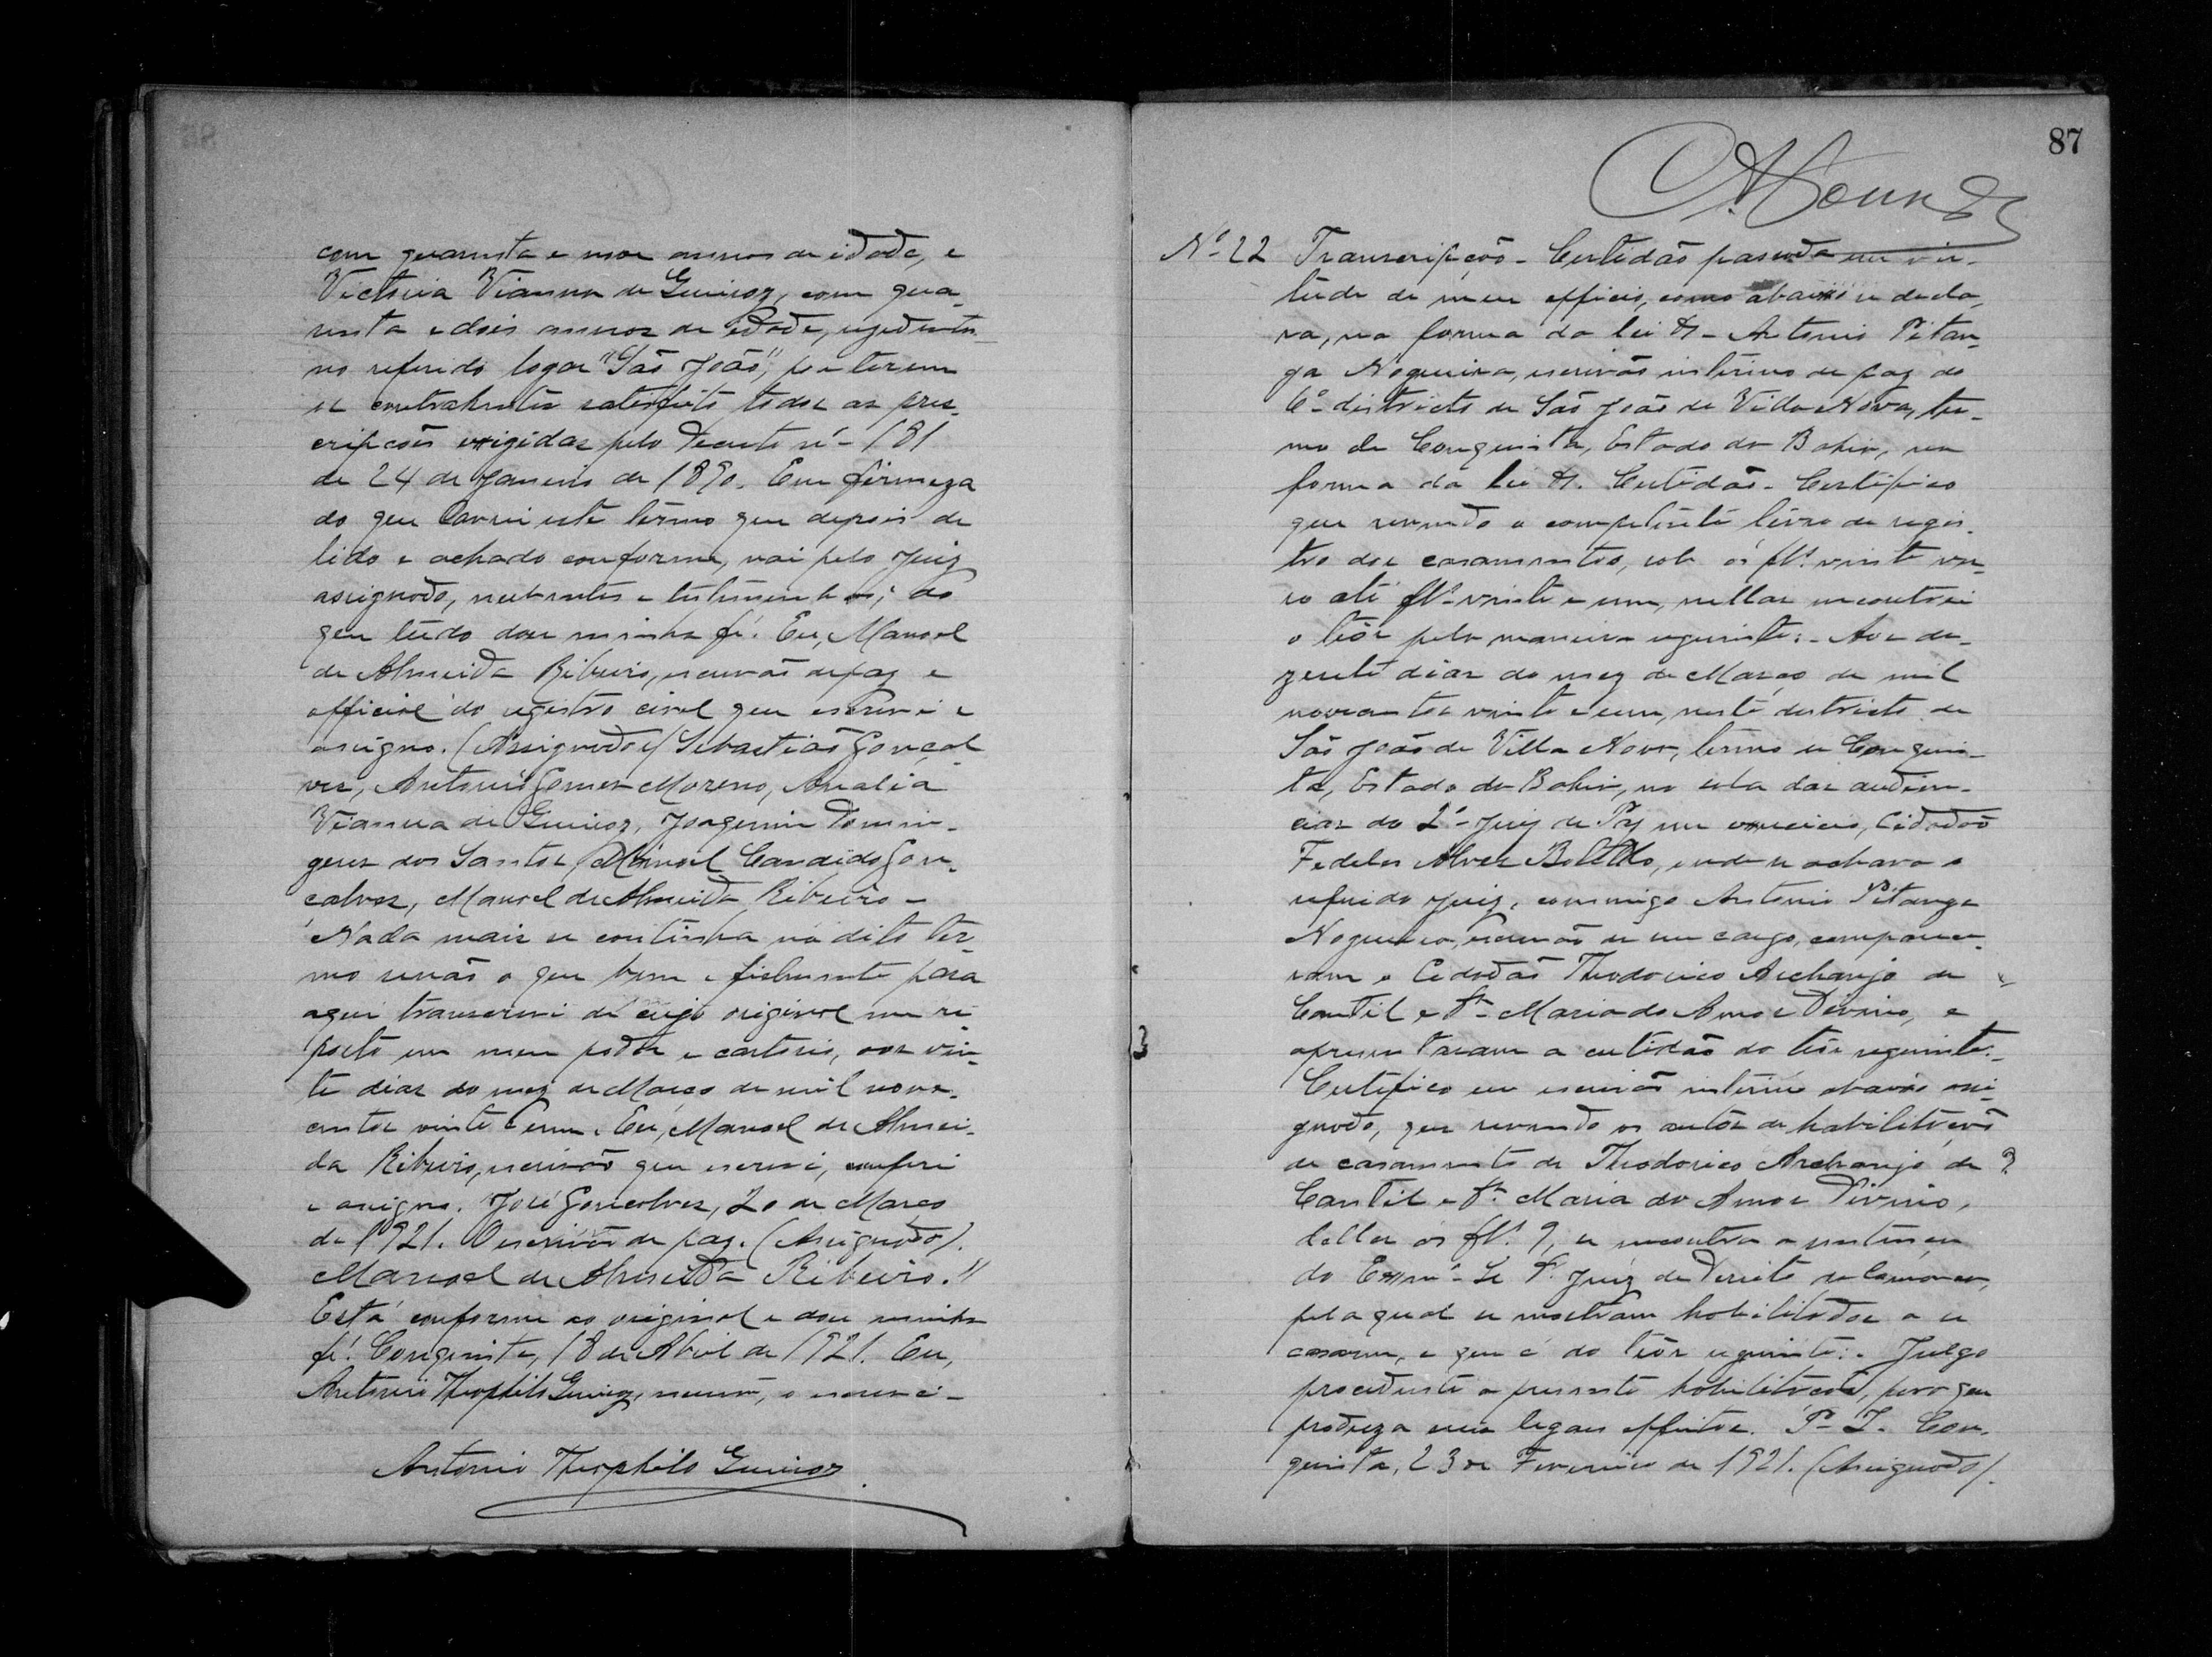 com quarenta e nove annos de idade, e
Victoria Vianna de Queiroz, com qua-
renta e dois annos de edade, rezidentes
no referido logar "São João", por terem
os contrahentes satisfeito todas as pres-
cripções exigidas pelo Decreto nº 181
de 24 de Janeiro de 1890. Em firmeza
do que lavrei este termo que depois de
lido e achado conforme, vai pelo Juiz
assignado, nubentes e testemunhas; do
que tudo dou minha fé. Eu, Manoel
de Almeida Ribeiro, escrivão de paz e
official do registro civel que escrevi e
assigno. (Assignados) Sebastião Gonçal-
ves, Antonio Gomes Moreno, Analia
Vianna de Queiroz, Joaquim Domin-
gues dos Santos, Manoel Candido Gon-
çalves, Manoel de Almeida Ribeiro -
Nada mais se continha no dito ter-
mo senão o que bem e fielmente para
aqui transcrevi de cujo original me re-
porto em meu poder e cartorio, aos vin-
te dias do mez de Março de mil nove-
centos vinte e um. Eu, Manoel de Almei-
da Ribeiro, escrivão que escrevi, conferi
e assigno. José Gonçalves, 20 de Março
de 1921. O escrivão de paz. (Assignado).
Manoel de Almeida Ribeiro."
Está conforme ao original e dou minha
fé. Conquista, 18 de Abril de 1921. Eu,
Antonio Theophilo Queiroz, escrivão, o escrevi -
Antonio Theophilo Queiroz
87
Nº 22 Transcripção - Certidão passada em vir-
tude de meu officio, como abaixo se decla-
ra, na forma da lei &. - Antonio Pitan-
ga Nogueira, escrivão interino de paz do
6º districto de São João de Villa Nova, ter-
mo de Conquista, Estado da Bahia, na
forma da lei &. Certidão - Certifico
que revendo o competente livro de regis-
tro dos casamentos, sob os fls. vinte ver-
so até fls. vinte e um, nellas encontrei
o teôr pela maneira seguinte: - Aos de-
zesete dias do mez de Março de mil
novecentos vinte e um, neste destricto de
São João de Villa Nova, termo de Conquis-
ta, Estado da Bahia, na sala das audien-
cias do 2º Juiz de Paz em exercicio, Cidadão
Fedelis Alves Botelho, onde se achava o
referido Juiz, commigo Antonio Pitanga
Nogueira, escrivão de seu cargo, comparece-
ram o Cidadão Theodorico Archanjo de
Cantil e Dª Maria do Amor Divino, e
apresentaram a certidão do teôr seguinte: -
Certifico eu escrivão interino abaixo assi-
gnado, que revendo os autos de habilitação
de casamento de Theodorico Archanjo de
Cantil e Dª Maria do Amor Divino,
delles ás fls. 9, se encontra a sentença
do Exmº Sr. Dr. Juiz de Direito da Comarca,
pela qual se mostram habilitados a se
casarem, e que é do teôr seguinte: - Julgo
procedente a presente habilitação, para que
produza seus legaes effeitos. P. I. Con-
quista, 23 de Fevereiro de 1921. (Assignado).